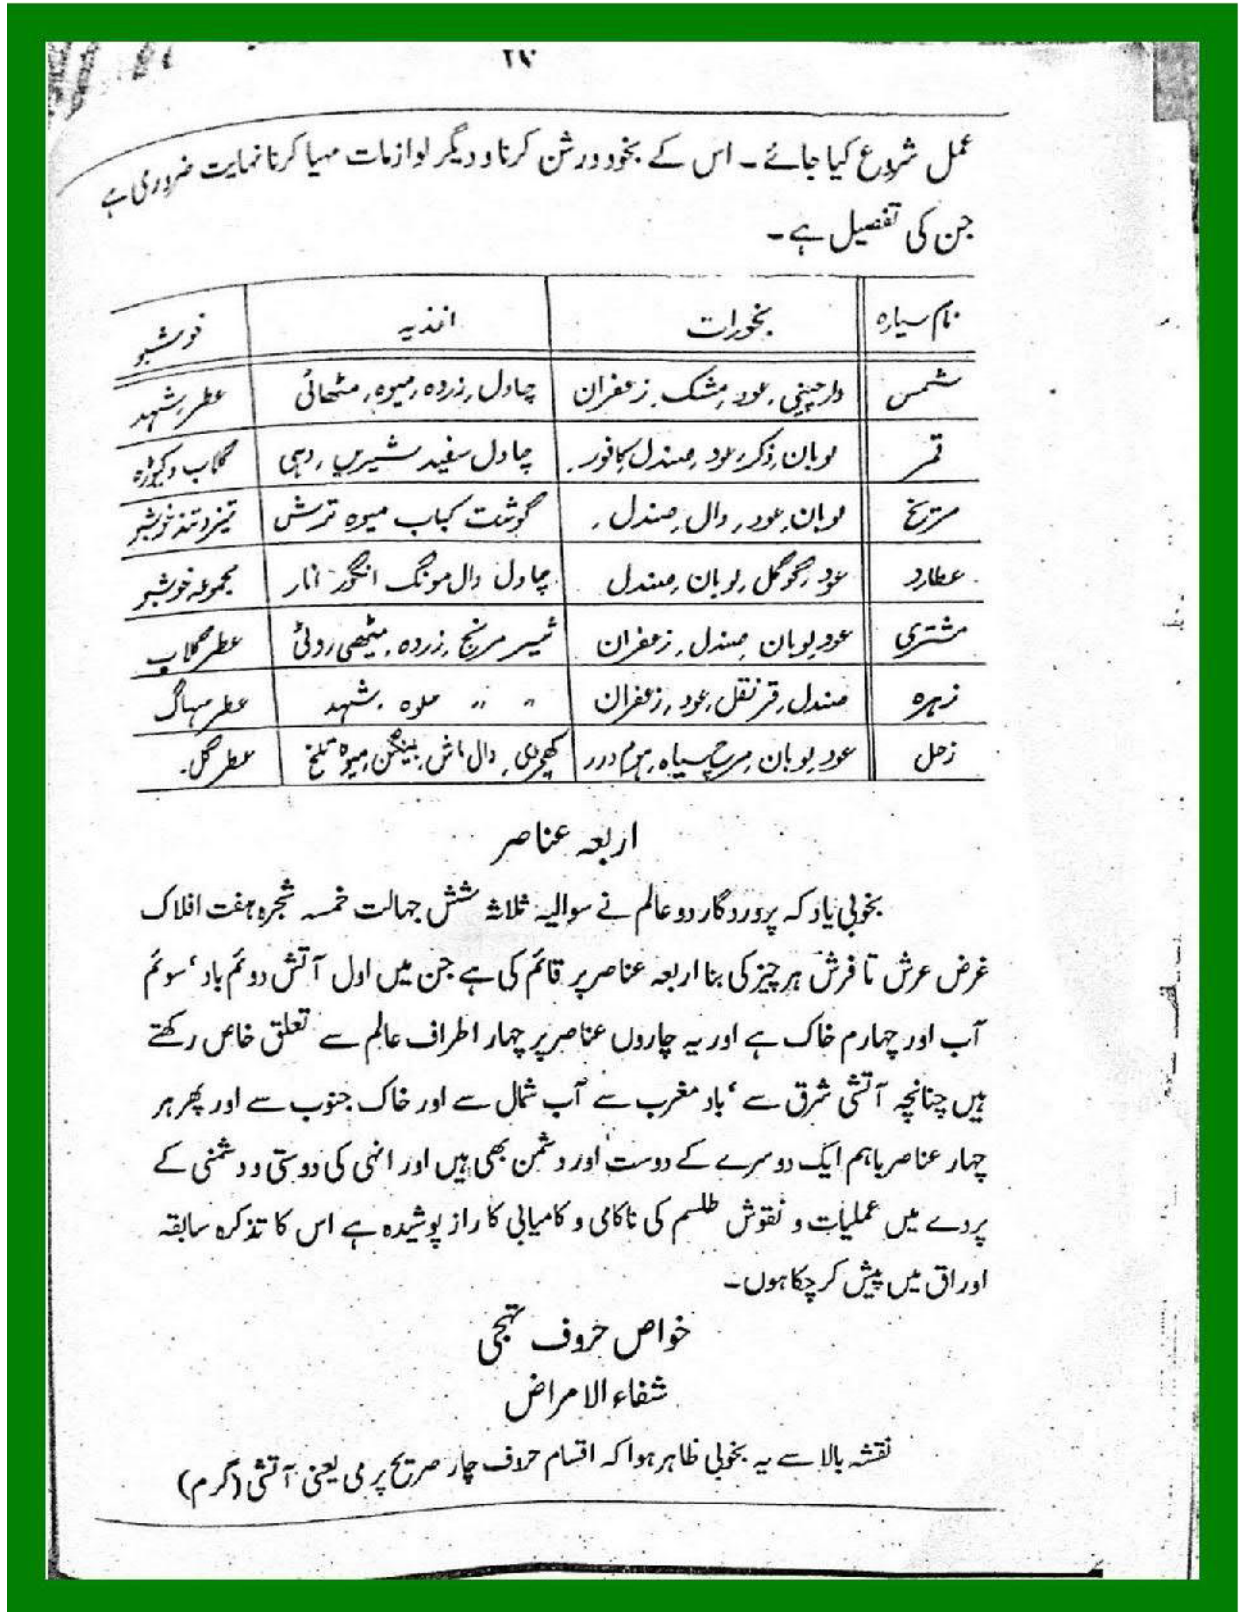 ۲۷
عمل شروع کیا جائے ۔ اس کے بخور روشن کرنا و دیگر لوازمات مہیا کرنا نہایت ضروری ہے
جن کی تفصیل ہے ۔
نام سیارہ بخورات اغذیہ خوشبو
شمس دارچینی، عود، مشک، زعفران چاول، زردہ، میوہ، مٹھائی عطر شہد
قمر لوبان، ذکر، عود، صندل، کافور، چاول سفید شیریں، دہی گلاب و کیوڑہ
مریخ لوبان، عود، دال، صندل، گوشت کباب میوہ ترش تیز و تند خوشبو
عطارد عود، گوگل، لوبان، صندل چاول دال مونگ انگور انار مجموعہ خوشبو
مشتری عود، لوبان، صندل، زعفران شیر برنج، زردہ، میٹھی روٹی عطر گلاب
زہرہ صندل، قرنفل، عود، زعفران " " حلوہ، شہد عطر سہاگ
زحل عود، لوبان، مرچ سیاہ، کھچڑی، دال ماش، بینگن، میوہ تلخ عطر گل۔
اربعہ عناصر
بخوبی یاد کہ پروردگار دو عالم نے سوالیہ ثلاثہ شش جہالت خمسہ شجرہ ہفت افلاک
غرض عرش تا فرش ہر چیز کی بنا اربعہ عناصر پر قائم کی ہے جن میں اول آتش دوئم باد ‘ سوئم
آب اور چہارم خاک ہے اور یہ چاروں عناصر پر چہار اطراف عالم سے تعلق خاص رکھتے
ہیں چنانچہ آتشی شرق سے ‘ باد مغرب سے آب شمال سے اور خاک جنوب سے اور پھر ہر
چہار عناصر باہم ایک دوسرے کے دوست اور دشمن بھی ہیں اور انہی کی دوستی و دشمنی کے
پردے میں عملیات و نقوش طلسم کی ناکامی و کامیابی کا راز پوشیدہ ہے اس کا تذکرہ سابقہ
اوراق میں پیش کر چکا ہوں ۔
خواص حروف تہجی
شفاء الامراض
نقشہ بالا سے یہ بخوبی ظاہر ہوا کہ اقسام حروف چار صریح پر می یعنی آتشی (گرم)